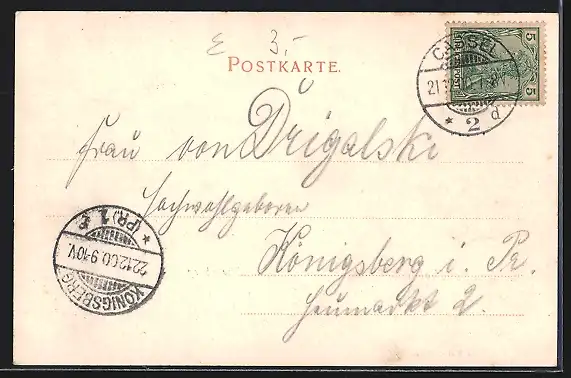 E 3,-
POSTKARTE.
CASSEL
21.12.
* 2 d
5 5
Frau von Drigalski
Hochwohlgeboren
Königsberg i. Pr.
Heumarkt 2.
KÖNIGSBERG
22.12.00.9-10V.
* (PR.) 1